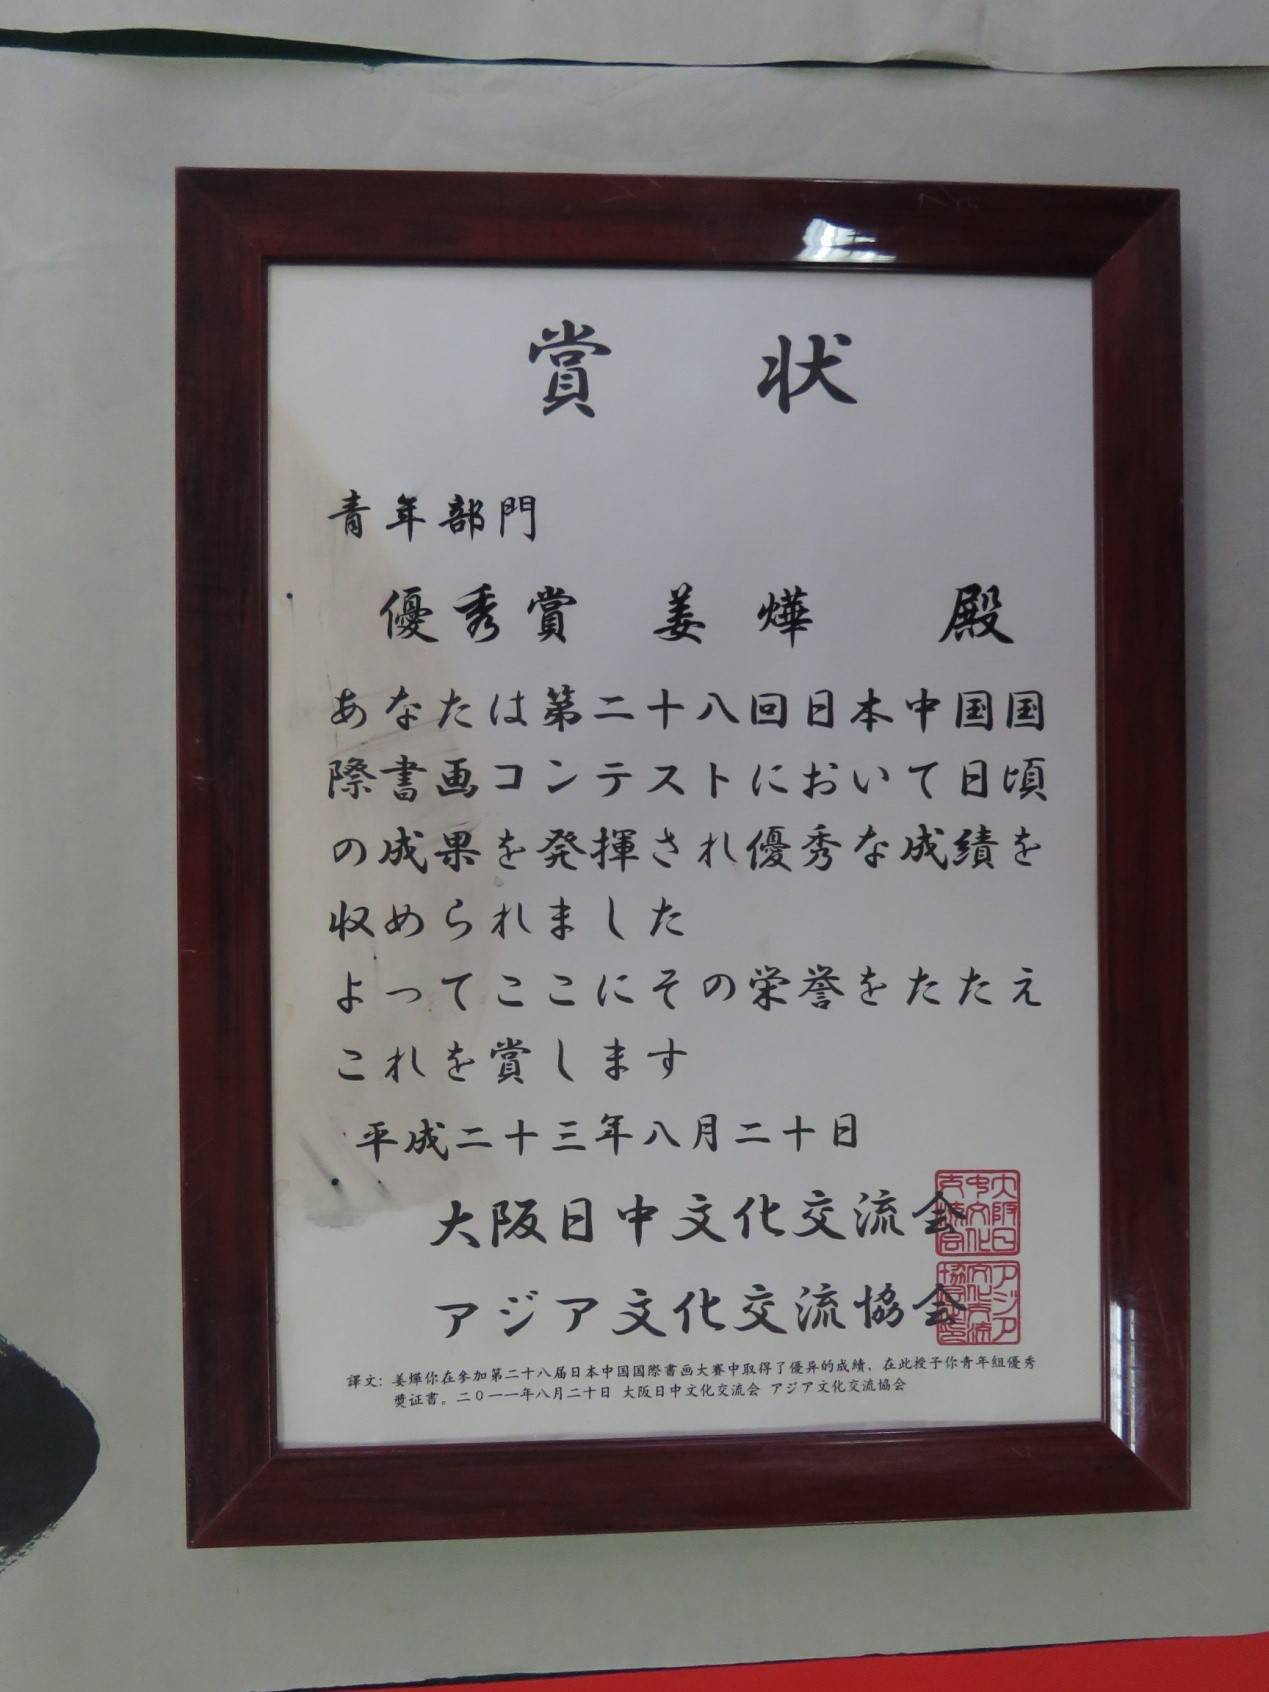 賞状
青年部門
優秀賞 姜燁 殿
あなたは第二十八回日本中国国
際書画コンテストにおいて日頃
の成果を発揮され優秀な成績を
収められました
よってここにその栄誉をたたえ
これを賞します
平成二十三年八月二十日
大阪日中文化交流会
アジア文化交流協会
譯文：姜燁你在參加第二十八届日本中国国際書画大賽中取得了優异的成績，在此授予你青年組優秀
獎证書。二〇一一年八月二十日 大阪日中文化交流会 アジア文化交流協会